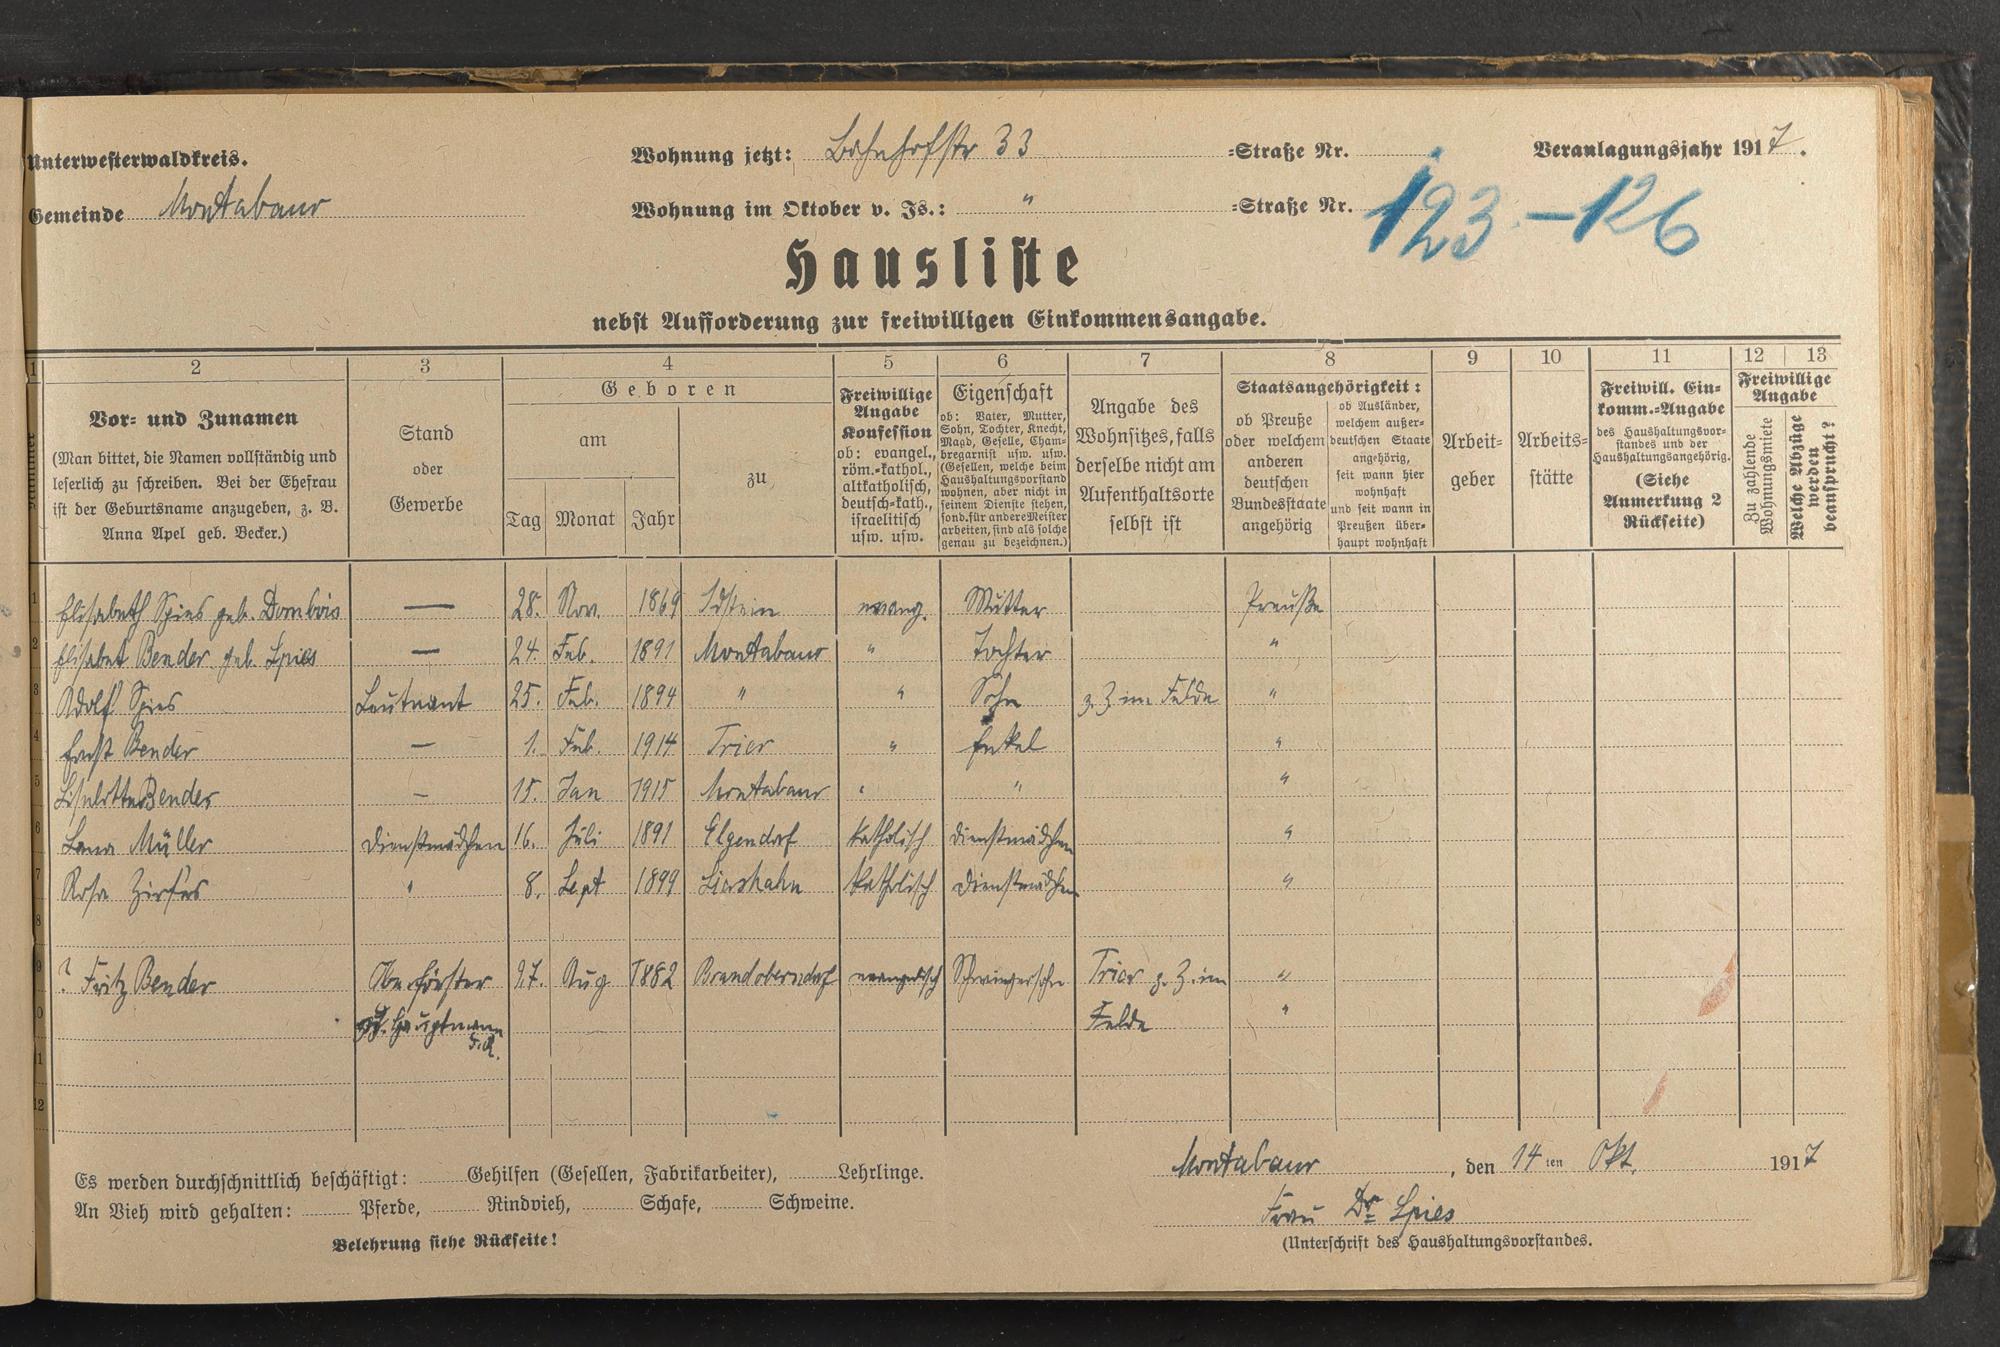 Unterwesterwaldkreis.
Wohnung jetzt: Bahnhofstr 33 =Straße Nr.
Veranlagungsjahr 1917.
Gemeinde Montabaur
Wohnung im Oktober v. Js.: " =Straße Nr.
123-126
Hausliste
nebst Aufforderung zur freiwilligen Einkommensangabe.
1 2 3 4 5 6 7 8 9 10 11 12 13
Nummer
Vor- und Zunamen
(Man bittet, die Namen vollständig und
leserlich zu schreiben. Bei der Ehefrau
ist der Geburtsname anzugeben, z. B.
Anna Apel geb. Becker.)
Stand
oder
Gewerbe
Geboren
am
Tag Monat Jahr
zu
Freiwillige
Angabe
Konfession
ob: evangel.,
röm.-kathol.,
altkatholisch,
deutsch-kath.,
israelitisch
usw. usw.
Eigenschaft
ob: Vater, Mutter,
Sohn, Tochter, Knecht,
Magd, Geselle, Cham-
bregarnist usw. usw.
(Gesellen, welche beim
Haushaltungsvorstand
wohnen, aber nicht in
seinem Dienste stehen,
sond. für andere Meister
arbeiten, sind als solche
genau zu bezeichnen.)
Angabe des
Wohnsitzes, falls
derselbe nicht am
Aufenthaltsorte
selbst ist
Staatsangehörigkeit:
ob Preuße
oder welchem
anderen
deutschen
Bundesstaate
angehörig
ob Ausländer,
welchem außer-
deutschen Staate
angehörig,
seit wann hier
wohnhaft
und seit wann in
Preußen über-
haupt wohnhaft
Arbeit-
geber
Arbeits-
stätte
Freiwill. Ein-
komm.-Angabe
des Haushaltungsvor-
standes und der
Haushaltungsangehörig.
(Siehe
Anmerkung 2
Rückseite)
Freiwillige
Angabe
Zu zahlende
Wohnungsmiete
Welche Abzüge
werden
beansprucht?
1 Elisabeth Spies geb. Dombois — 28. Nov. 1869 Idstein evang. Mutter Preuße
2 Elisabet Bender geb. Spies — 24. Feb. 1891 Montabaur " Tochter "
3 Adolf Spies Leutnant 25. Feb. 1894 " " Sohn z. Z im Felde "
4 Ernst Bender — 1. Feb. 1914 Trier " Enkel "
5 Liselotte Bender — 15. Jan 1915 Montabaur " " "
6 Müller Dienstmädchen 16. Juli 1891 Elgendorf katholisch Dienstmädchen "
7 Rosa Zirfas " 8. Sept 1899 Siershahn katholisch Dienstmädchen "
8
9 ? Fritz Bender Oberförster 27. Aug 1882 Brandoberndorf evangelisch Schwiegersohn Trier z. Z. im "
0 Hauptmann Felde "
d. R.
11
12
Es werden durchschnittlich beschäftigt: Gehilfen (Gesellen, Fabrikarbeiter), Lehrlinge.
An Vieh wird gehalten: Pferde, Rindvieh, Schafe, Schweine.
Belehrung siehe Rückseite!
Montabaur, den 14ten Okt. 1917
Frau Dr Spies
(Unterschrift des Haushaltungsvorstandes.